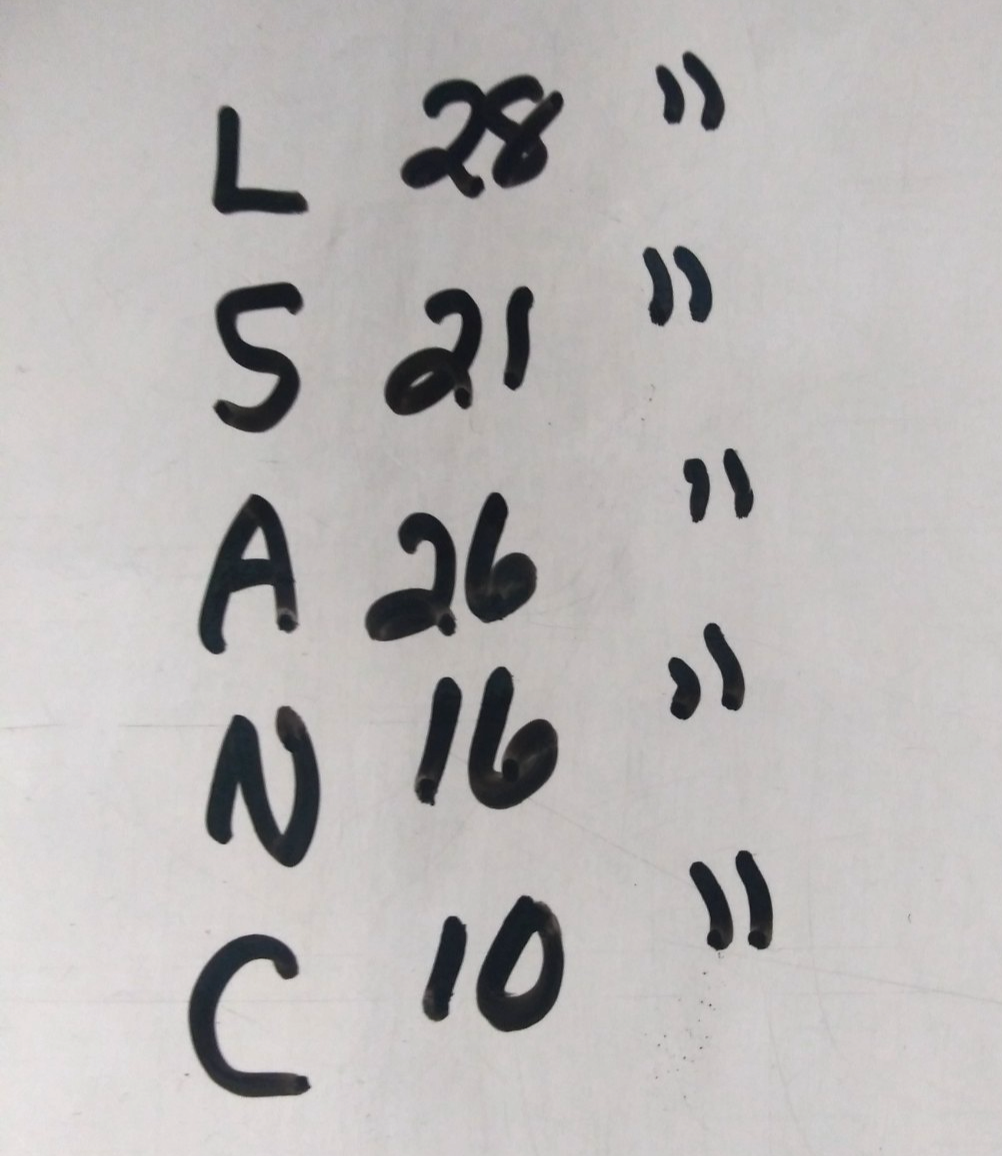 L 28 "
S 21 "
A 26 "
N 16 "
C 10 "